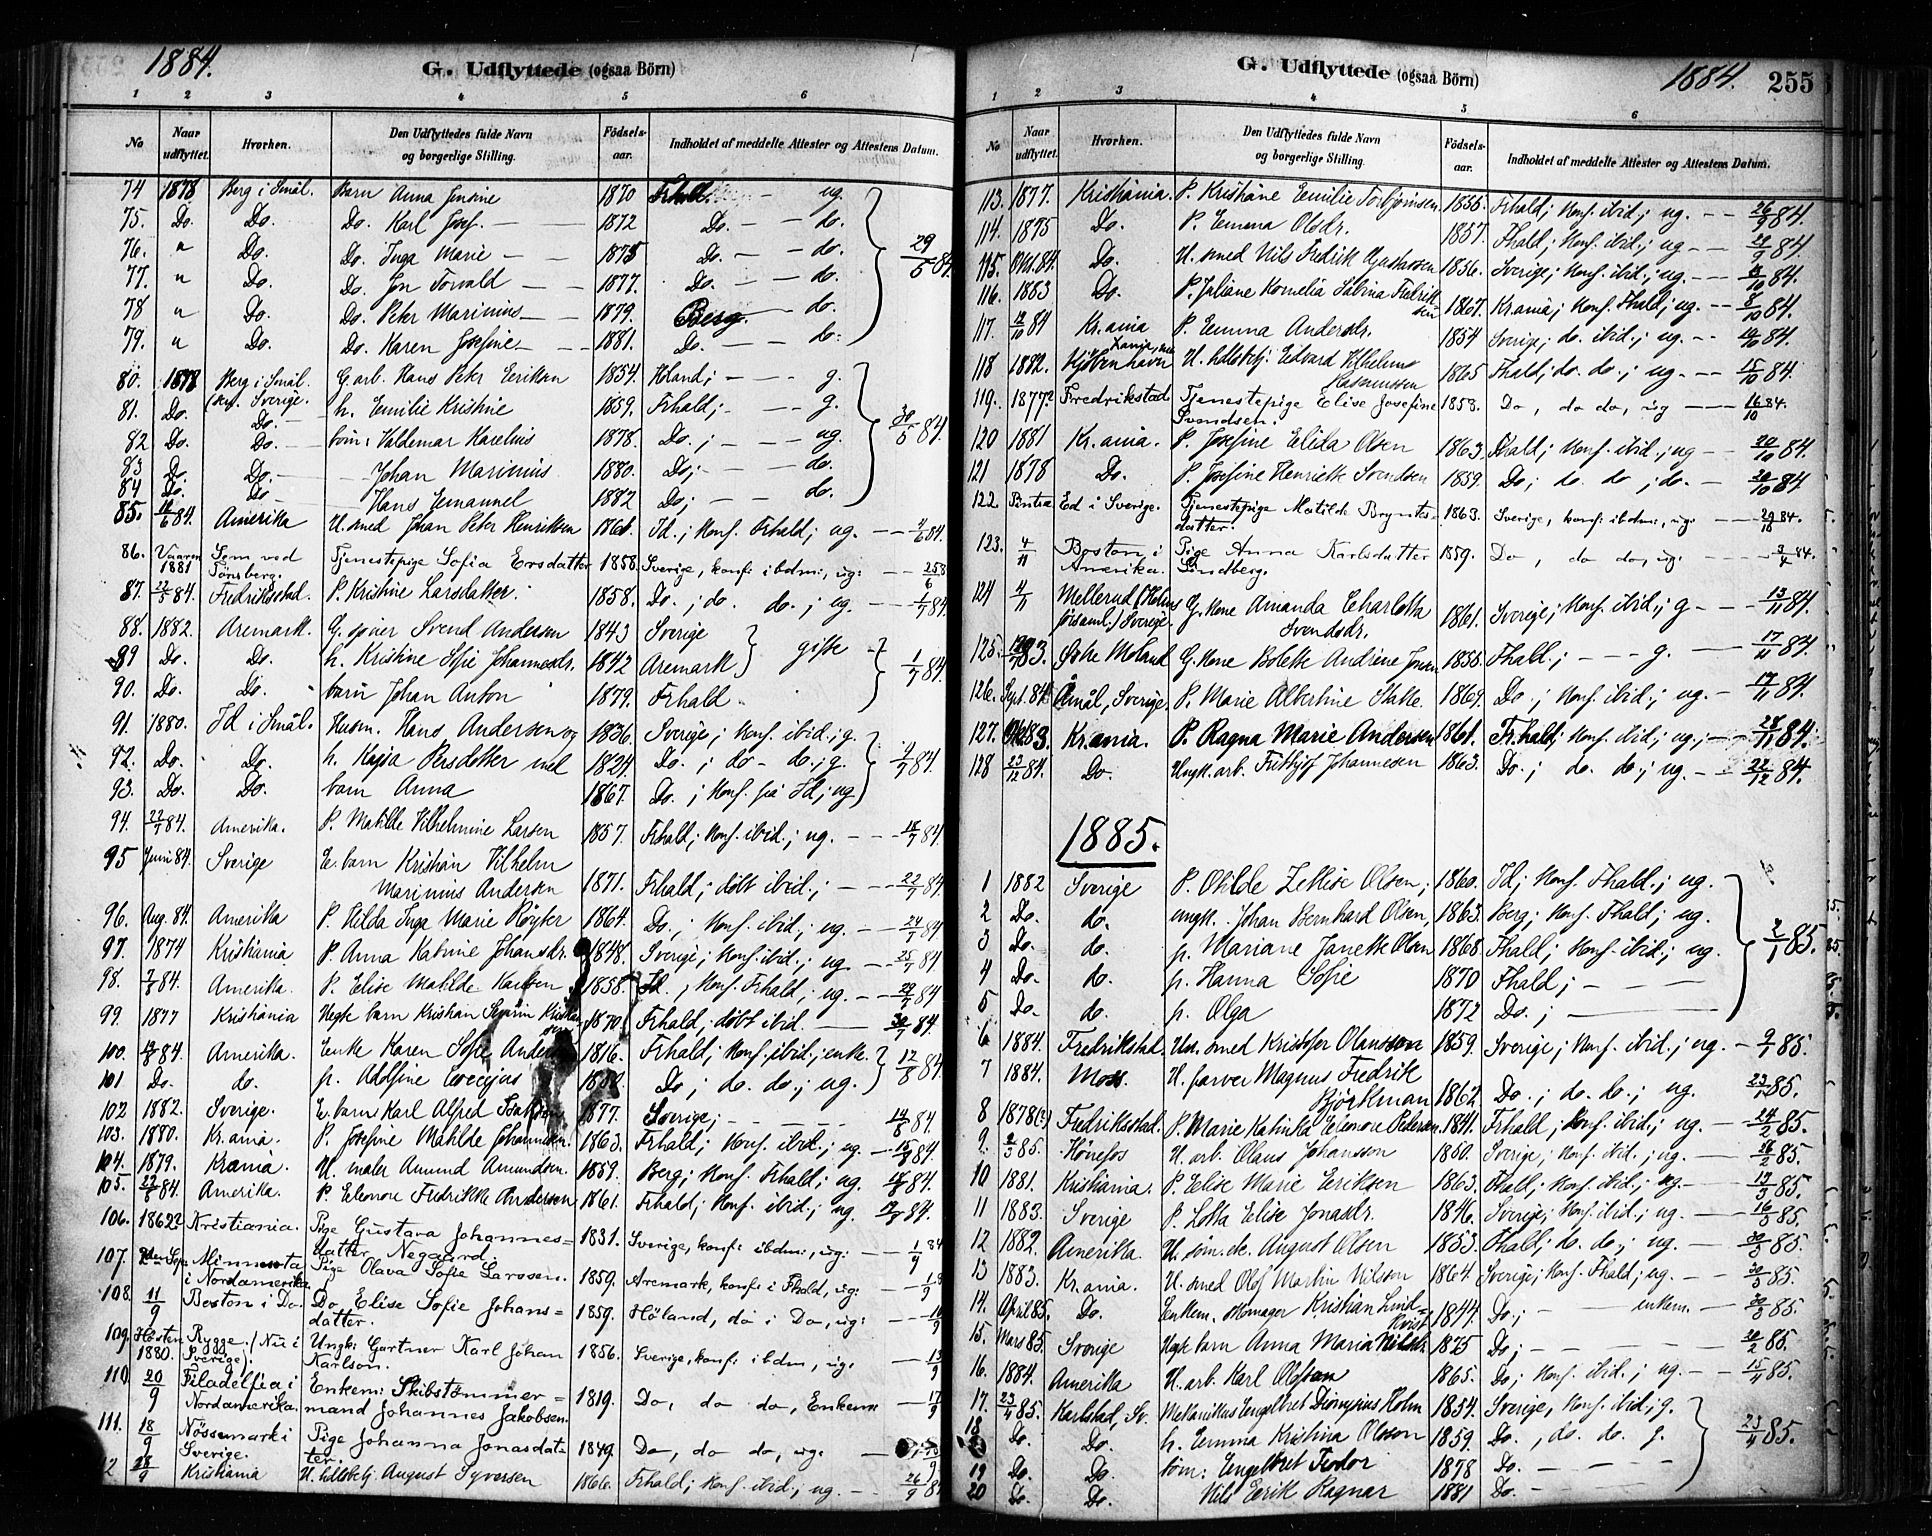 1884.
G. Udflyttede (ogsaa Börn)
1 2 3 4 5 6
No | Naar udflyttet. | Hvorhen. | Den Udflyttedes fulde Navn og borgerlige Stilling. | Födsels-aar. | Indholdet af meddelte Attester og Attestens Datum.
74 1878 Berg i Smål. Barn Anna Jensine 1870 Frhald. ug.
75. Do. Do. Do. Karl Josef. 1872 Do. - do.
76. " Do. Do. Inga Marie 1875 Do. - do. 29/5 84.
77. " Do. Do. Jon Torvald 1877. Do. - do.
78 " Do. Do. Peter Marinius 1879. Berg. do.
79. " Do. Do. Karen Josefine 1881. Do. - do.
80. 1878 Berg i Smål. G. arb. Hans Peter Eriksen 1854. Höland; g.
81. Do. Do. h. Emilie Kristine 1859. Frhald; g.
82 Do. Do. börn: Valdemar Karelius 1878. Do.; ug. 84.
83 Do. Do. Johan Marinius 1880. Do; do.
84 Do. Do. Hans Emanuel 1882 Do; do.
85. 84. Amerika U. smed Johan Peter Henriksen Id.; Konf. Frhald; ug. 84.
86. Vaaren 1881 Sem ved Tönsberg. Tjenestepige Sofia Ersdatter 1858. Sverige, konf: ibdm:, ug:
87. 22/5 84. Fredriksstad. P. Kristine Larsdatter. 1858. Do.; do. do.; ug. 1/7 84.
88. 1882. Aremark. G. Svend Andersen 1843 Sverige
89 Do. Do. h. Kristine Sofie Johannesdr. 1842 Aremark } gifte 1/7 84.
90. Do. Do. barn Johan Anton 1879. Frhald
91. 1880. Id i Smål. Husm. Hans Andersen og 1836. Sverige; Konf. ibid.; g.
92. Do. Do. h. Kajsa Persdatter med 1824. Do.; do - do.; g. 84.
93. Do. Do. barn Anna 1867. Do.; Konf. fra Id; ug
94. 84. Amerika. P. Matilde Vilhelmine Larsen 1857. Frhald; Konf. ibid.; ug. 18/7 84.
95 Juni 84. Sverige E. barn Kristian Vilhelm
Marinius Andersen 1871. Frhald; döbt ibid.; 22/7 84.
96. Aug. 84. Amerika P. Hilda Inga Marie Röyser 1864. Do.; Konf. ibid.; ug. 24/7 84
97. 1874 Kristiania P. Anna Katrine Johansdr. 1848. Sverige; Konf. ibid.; ug 25/7 84
98. 84. Amerika. P. Elise Matilde Karlsen 1858. Id.; Konf. Frhald; ug. 29/7 84
99. 1877 Kristiania Uegte barn Kristian Severin Kristiansen 1870. Frhald; döbt ibid. 30/7 84.
100. 84. Amerika. Enke Karen Sofie Andersen 1816. Frhald; Konf. ibid.; enke. 12/8 84.
101 Do. do. p. Adolfine 1858. Do; do. do.; ug.
102 1882. Sverige. E. barn Karl Alfred 1877. Sverige; 14/8 84.
103. 1880. Kr.ania. P. Josefine Matilde Johannesen. 1863. Frhald; Konf. ibid.; ug 15/8 84.
104. 1879. Krania. U. maler Amund Amundsen. 1859. Berg; Konf. Frhald; ug. 84.
105. 84. Amerika. P. Eleonore Fredrikke Andersen 1861. Frhald; Konf. ibid.; ug. 84.
106. 1862? Kristiania. Pige Gustava Johannes=
datter Negaard. 1831. Sverige, konf: ibdm:, ug: 1/9 84
107. Minnesota i Nordamerika Pige Olava Sofie Larssen. 1859. Aremark, konf: i Fhald, ug:
108. 11/9 Boston i Do. Do Elise Sofie Johans=
datter. 1859. Höland, do i Do, ug:
109. Hösten 1880. Rygge. (Nu i Sverige). Ungk: Gartner Karl Johan
Karlson. 1856. Sverige, konf: ibdm, ug: 13/9
110. 20/9 Filadelfia i Nordamerika. Enkem: Skibstömmer=
mand Johannes Jakobsen. 1819. Do, do do, Enkem 17/9
111. 18/9 Nössemark i Sverige. Pige Johanna Jonasdat=
ter. 1849. Do, do do, ug:
28/9 Kristiania U. August Syversen 1866. Frhald; Konf. ibid.; ug. 26/9 84
G. Udflyttede (ogsaa Börn)
1884. 255
1 2 3 4 5 6
No | Naar udflyttet. | Hvorhen. | Den Udflyttedes fulde Navn og borgerlige Stilling. | Födsels-aar. | Indholdet af meddelte Attester og Attestens Datum.
113. 1877. Kristiania. P. Kristiane Emilie Torbjörnsen. 1856. Frhald; Konf. ibid.; ug. 26/9 84.
114. 1875 Do. P. Emma Olsdr. 1857. Fhald; Konf. ibid.; ug 84.
115. 84. Do. U. smed Nils Fredrik Gustavsen 1856. Sverige; Konf. ibid.; ug. 84.
116. 1883 Do. P. Juliane Kornelia Sabina Fredriksen 1867. Kr.ania; Konf. Fhald; ug. 8/10 84.
117. 12/10 84 Kr.ania P. Emma Andersdr. 1854 Sverige; do. ibid.; ug. 14/10 84.
118 1882. Kjöbenhavn U. Edvard Vilhelm
Rasmussen 1865 Fhald; do. do.; ug. 15/10 84.
119. 1877? Fredrikstad Tjenestepige Elise Josefine
Svendsen. 1858. Do, do do, ug 16/10 84.
120 1881 Kr.ania. P. Josefine Elida Olsen 1863. Fhald; Konf. ibid.; ug 20/10 84.
121 1878 Do. P. Josefine Henriette Svendsen 1859. Do; do. do; do. 20/10 84
122. Ed i Sverige. Tjenestepige Matilde Brynte=
datter. 1863. Sverige, konf: ibdm:, ug: 29/10 84.
123. 4/11 Boston i Amerika. Pige Anna Karlsdatter
Lindberg. 1859. Do, do do, ug: 84.
124 4/11 Mellerud (Holms församl.) Sverige. G. kone Amanda Charlotte
Svendsdr. 1861. Sverige; Konf. ibid.; g 13/11 84.
125. 83. Östre Moland G. kone Bolette Andrine Jensen 1858. Fhald.; g. 17/11 84.
126. Sept. 84 Åmål, Sverige. P. Marie Albertine 1869. Do.; Konf. ibid.; ug. 17/11 84.
127. 83. Kr.ania. P. Ragna Marie Andersen 1861. Fr.hald; Konf. ibid.; ug.; 28/11 84.
128 23/12 84. Do. Ungk. arb. Fritjof Johannesen 1863. Do.; do. do.; ug. 22/12 84.
1885.
1 1882 Sverige P. Otilde Olsen; 1860. Id; Konf. Fhald.; ug.
2 Do. do. ungk. Johan Bernhard Olsen 1863. Berg; Konf. Fhald; ug.
3 Do. do. p. Mariane Janette Olsen 1868 Fhald; Konf. ibid.; ug. 2/1 85.
4 Do. do. p. Hanna Sofie 1870 Fhald;
5 Do. do. p. Olga 1872 Do.;
6 1884. Fredrikstad. Un. smed Kristofer Olausson 1859. Sverige; Konf. ibid.; ug. 9/1 85.
7 1884. Moss. U. farver Magnus Fredrik
Björkman 1862 Do.; do. do.; ug. 85.
8 1878(?) Fredriksstad. P. Marie Katinka Eleonore Pedersen. 1841. Frhald; Konf. ibid.; ug. 24/2 85.
9. 85. Hönefos U. arb. Olaus Johansson 1850. Sverige; Konf. ibid.; ug. 26/2 85.
10 1881. Kristiania. P. Elise Marie Eriksen 1863. Fhald; Konf. ibid.; ug. 13/3 85.
11 1883. Sverige P. Lotta Elise Jonasdr. 1846. Sverige; Konf. ibid.; ug. 16/3 85.
12 1882. Amerika. U. söm. August Olsen 1853. Fhald; do. do.; ug. 30/3 85.
13 1883. Kr.ania. U. smed Olof Martin Nilsson 1864. Sverige; Konf. Fhald; ug. 30/3 85.
14. April 85. Do. Enkem. Kristian Lind=
kvist 1844. Do.; enkem. 30/3 85.
15. Mars 85. Sverige Uegte barn Anna Maria 1875 Do; 85.
16. 1884. Amerika U. arb. Karl Olofson 1865. Do; Konf. ibid.; ug. 15/4 85.
17. 23/4 85. Karlstad, Sv. Mekanikus Engelbret Dionysius Holm 1854. Sverige, Konf. ibid.; g.
18 Do. Do. h. Emma Kristina Olsson 1859. Do., do. do. g. 23/4 85.
19 Do. Do. söm: Engelbret Teodor 1878 Do.
20 Do. Do. Nils Erik Ragnar 1881 Do.